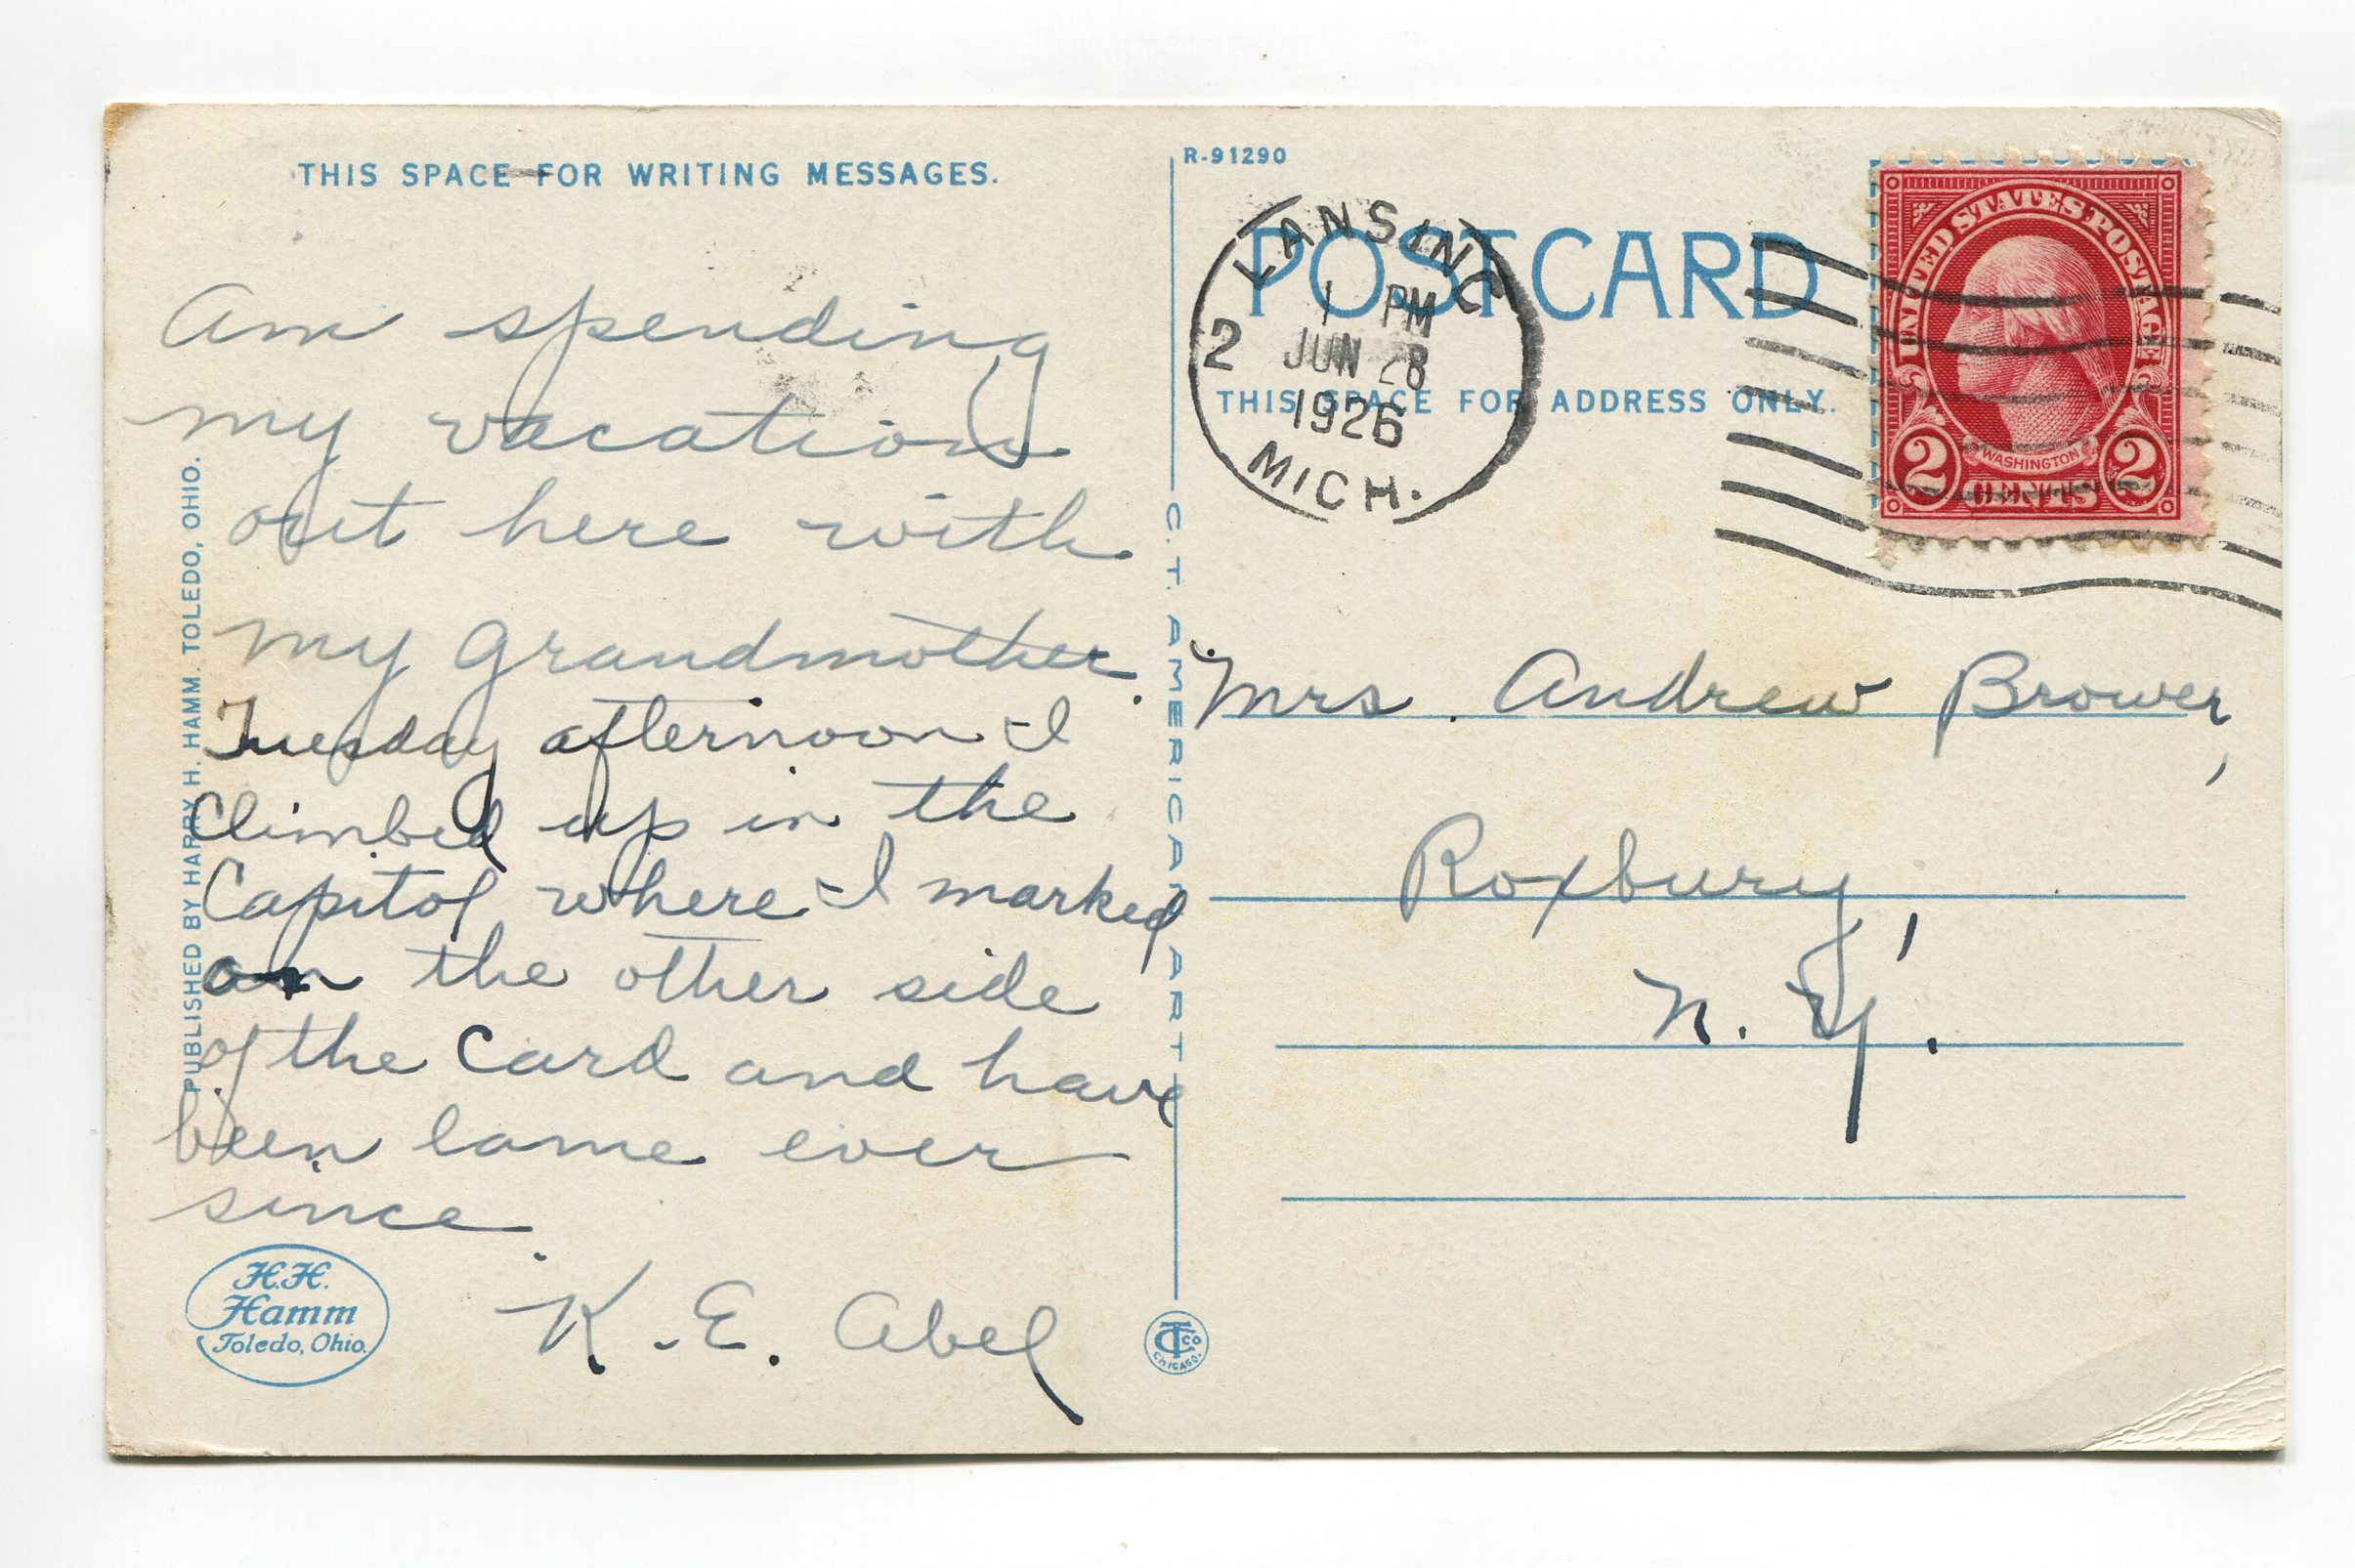 THIS SPACE FOR WRITING MESSAGES.
Am spending
my vacation
out here with
my grandmother.
Tuesday afternoon I
Climbed up in the
Capitol where I marked
on the other side
of the card and have
been lame ever
since.
K. E. Abel
PUBLISHED BY HARRY H. HAMM. TOLEDO, OHIO.
H.H.
Hamm
Toledo, Ohio.
C. T. AMERICAN ART
CT CO
CHICAGO.
R-91290
POSTCARD
THIS SPACE FOR ADDRESS ONLY.
LANSING
1 PM
2 JUN 28
1926
MICH.
UNITED STATES POSTAGE
WASHINGTON
2 CENTS 2
Mrs. Andrew Brower,
Roxbury,
N. Y.